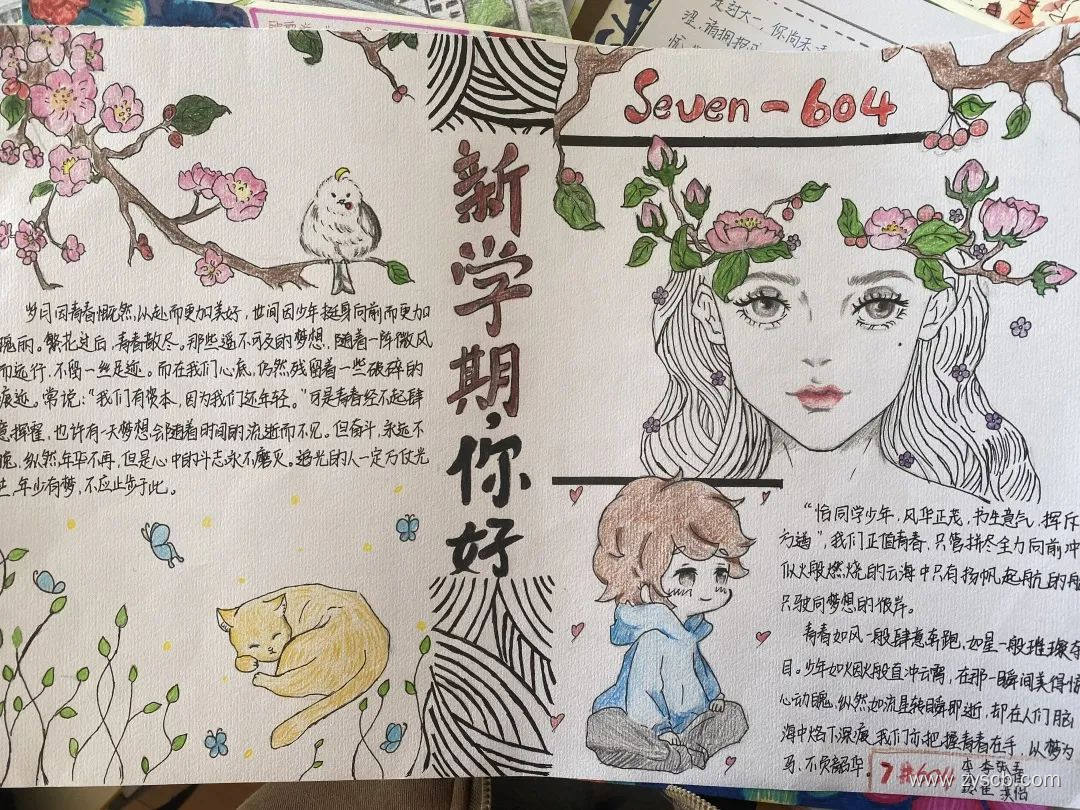 走过大一,你尚未
Seven-604
新学期,你好
岁月因青春慨然以赴而更加美好,世间因少年挺身向前而更加
瑰丽。繁花过后,青春散尽。那些遥不可及的梦想,随着一阵微风
而远行,不留一丝足迹。而在我们心底,仍然残留着一些破碎的
痕迹。常说:“我们有资本,因为我们还年轻。”可是青春经不起肆
意挥霍,也许有一天梦想会随着时间的流逝而不见。但奋斗,永远不
晚,纵然年华不再,但是心中的斗志永不磨灭。追光的人一定万丈光
芒,年少有梦,不应止步于此。
“恰同学少年,风华正茂,书生意气,挥斥
方遒”,我们正值青春,只管拼尽全力向前冲
似火般燃烧的云海中只有扬帆起航的船
只驶向梦想的彼岸。
青春如风一般肆意奔跑,如星一般璀璨夺
目。少年如烟火般直冲云霄,在那一瞬间美得惊
心动魄,纵然如流星转瞬即逝,却在人们脑
海中烙下深痕,我们亦把握青春在手,以梦为
马,不负韶华。
7#604
www.zyscb.com